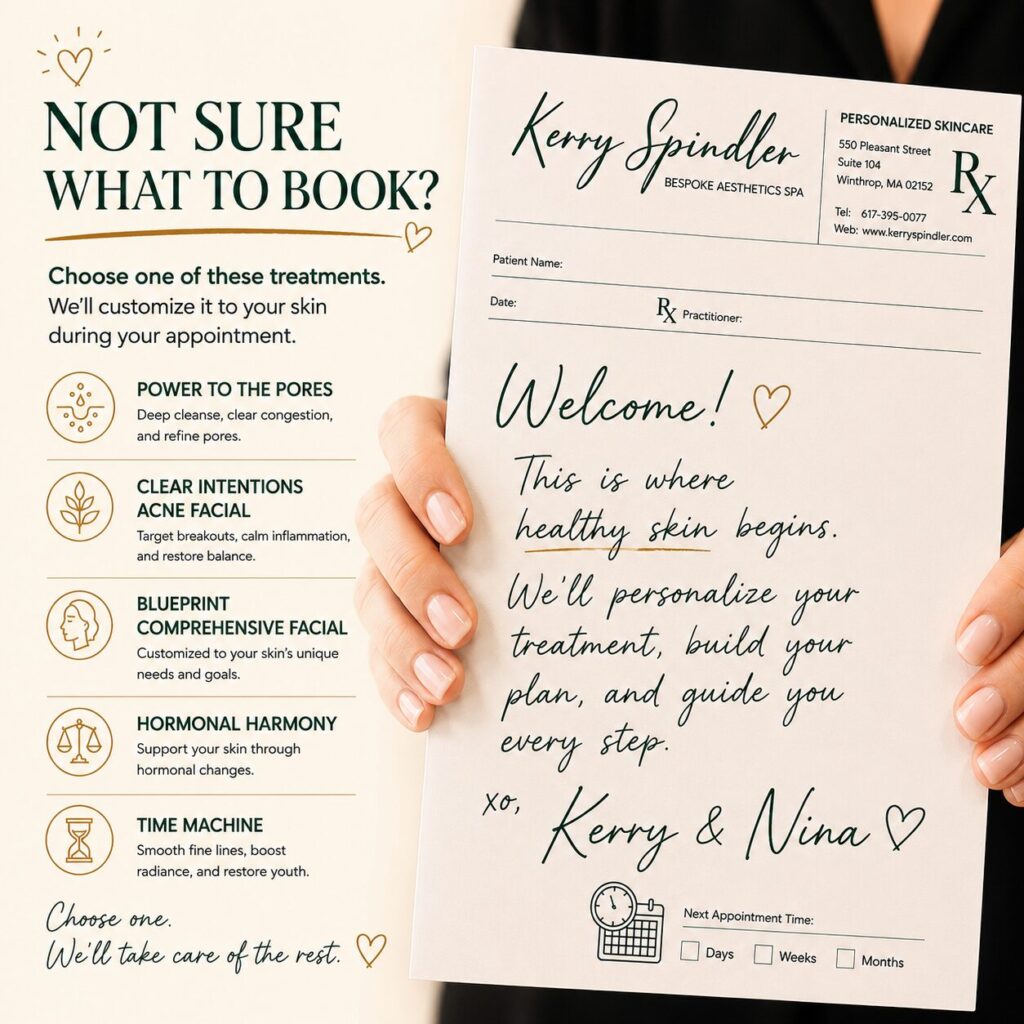 NOT SURE
WHAT TO BOOK?
Choose one of these treatments.
We'll customize it to your skin
during your appointment.
POWER TO THE PORES
Deep cleanse, clear congestion,
and refine pores.
CLEAR INTENTIONS
ACNE FACIAL
Target breakouts, calm inflammation,
and restore balance.
BLUEPRINT
COMPREHENSIVE FACIAL
Customized to your skin's unique
needs and goals.
HORMONAL HARMONY
Support your skin through
hormonal changes.
TIME MACHINE
Smooth fine lines, boost
radiance, and restore youth.
Choose one.
We'll take care of the rest.
Kerry Spindler
BESPOKE AESTHETICS SPA
PERSONALIZED SKINCARE
550 Pleasant Street
Suite 104
Winthrop, MA 02152
Rx
Tel: 617-395-0077
Web: www.kerryspindler.com
Patient Name:
Date:
Rx Practitioner:
Welcome!
This is where
healthy skin begins.
We'll personalize your
treatment, build your
plan, and guide you
every step.
xo,
Kerry & Nina
Next Appointment Time:
Days
Weeks
Months